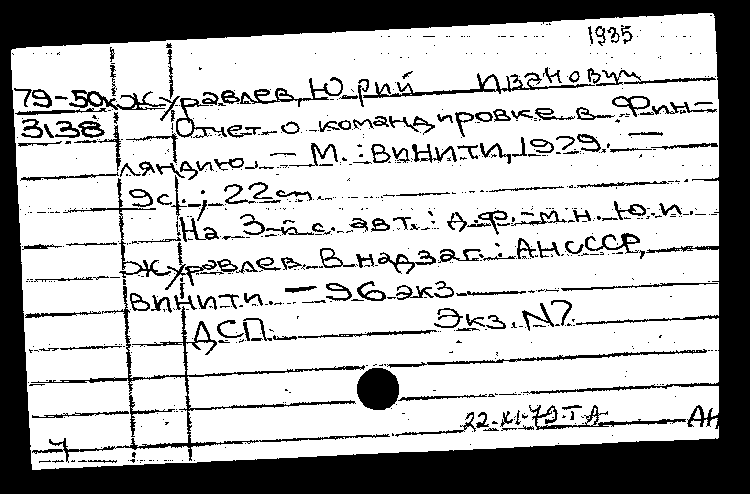 1935
79-50к Журавлев, Юрий Иванович
3138 Отчет о командировке в Фин-
ляндию. - М.: ВИНИТИ, 1979. -
9с.; 22см.
На 3-й с. авт.: д.ф.-м.н. Ю.И.
Журавлев. В надзаг.: АН СССР,
ВИНИТИ. - 96 экз.
ДСП. Экз. N7.
22-XI-79-Т А АН
4